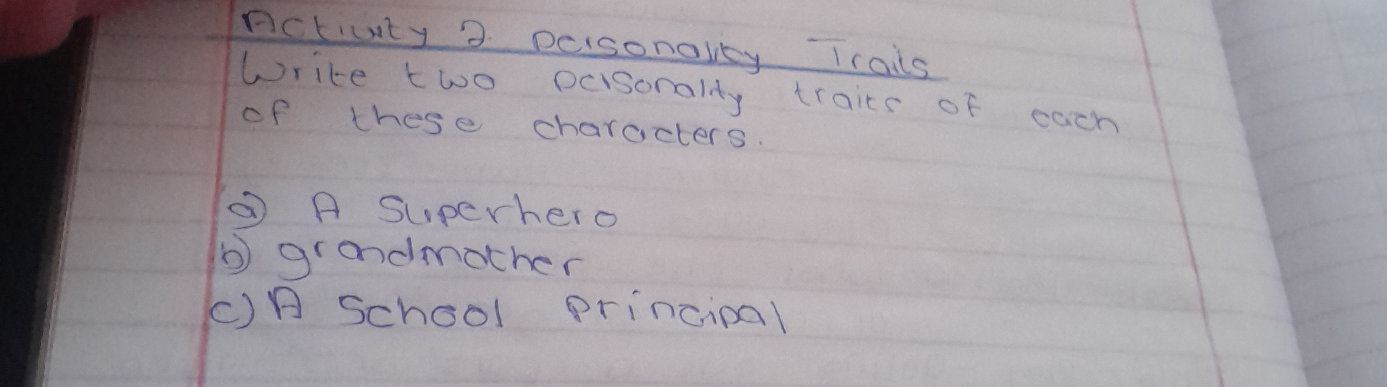 Activity 2. personality Traits
Write two personality traits of each
of these characters.
a) A superhero
b) grandmother
c) A School principal